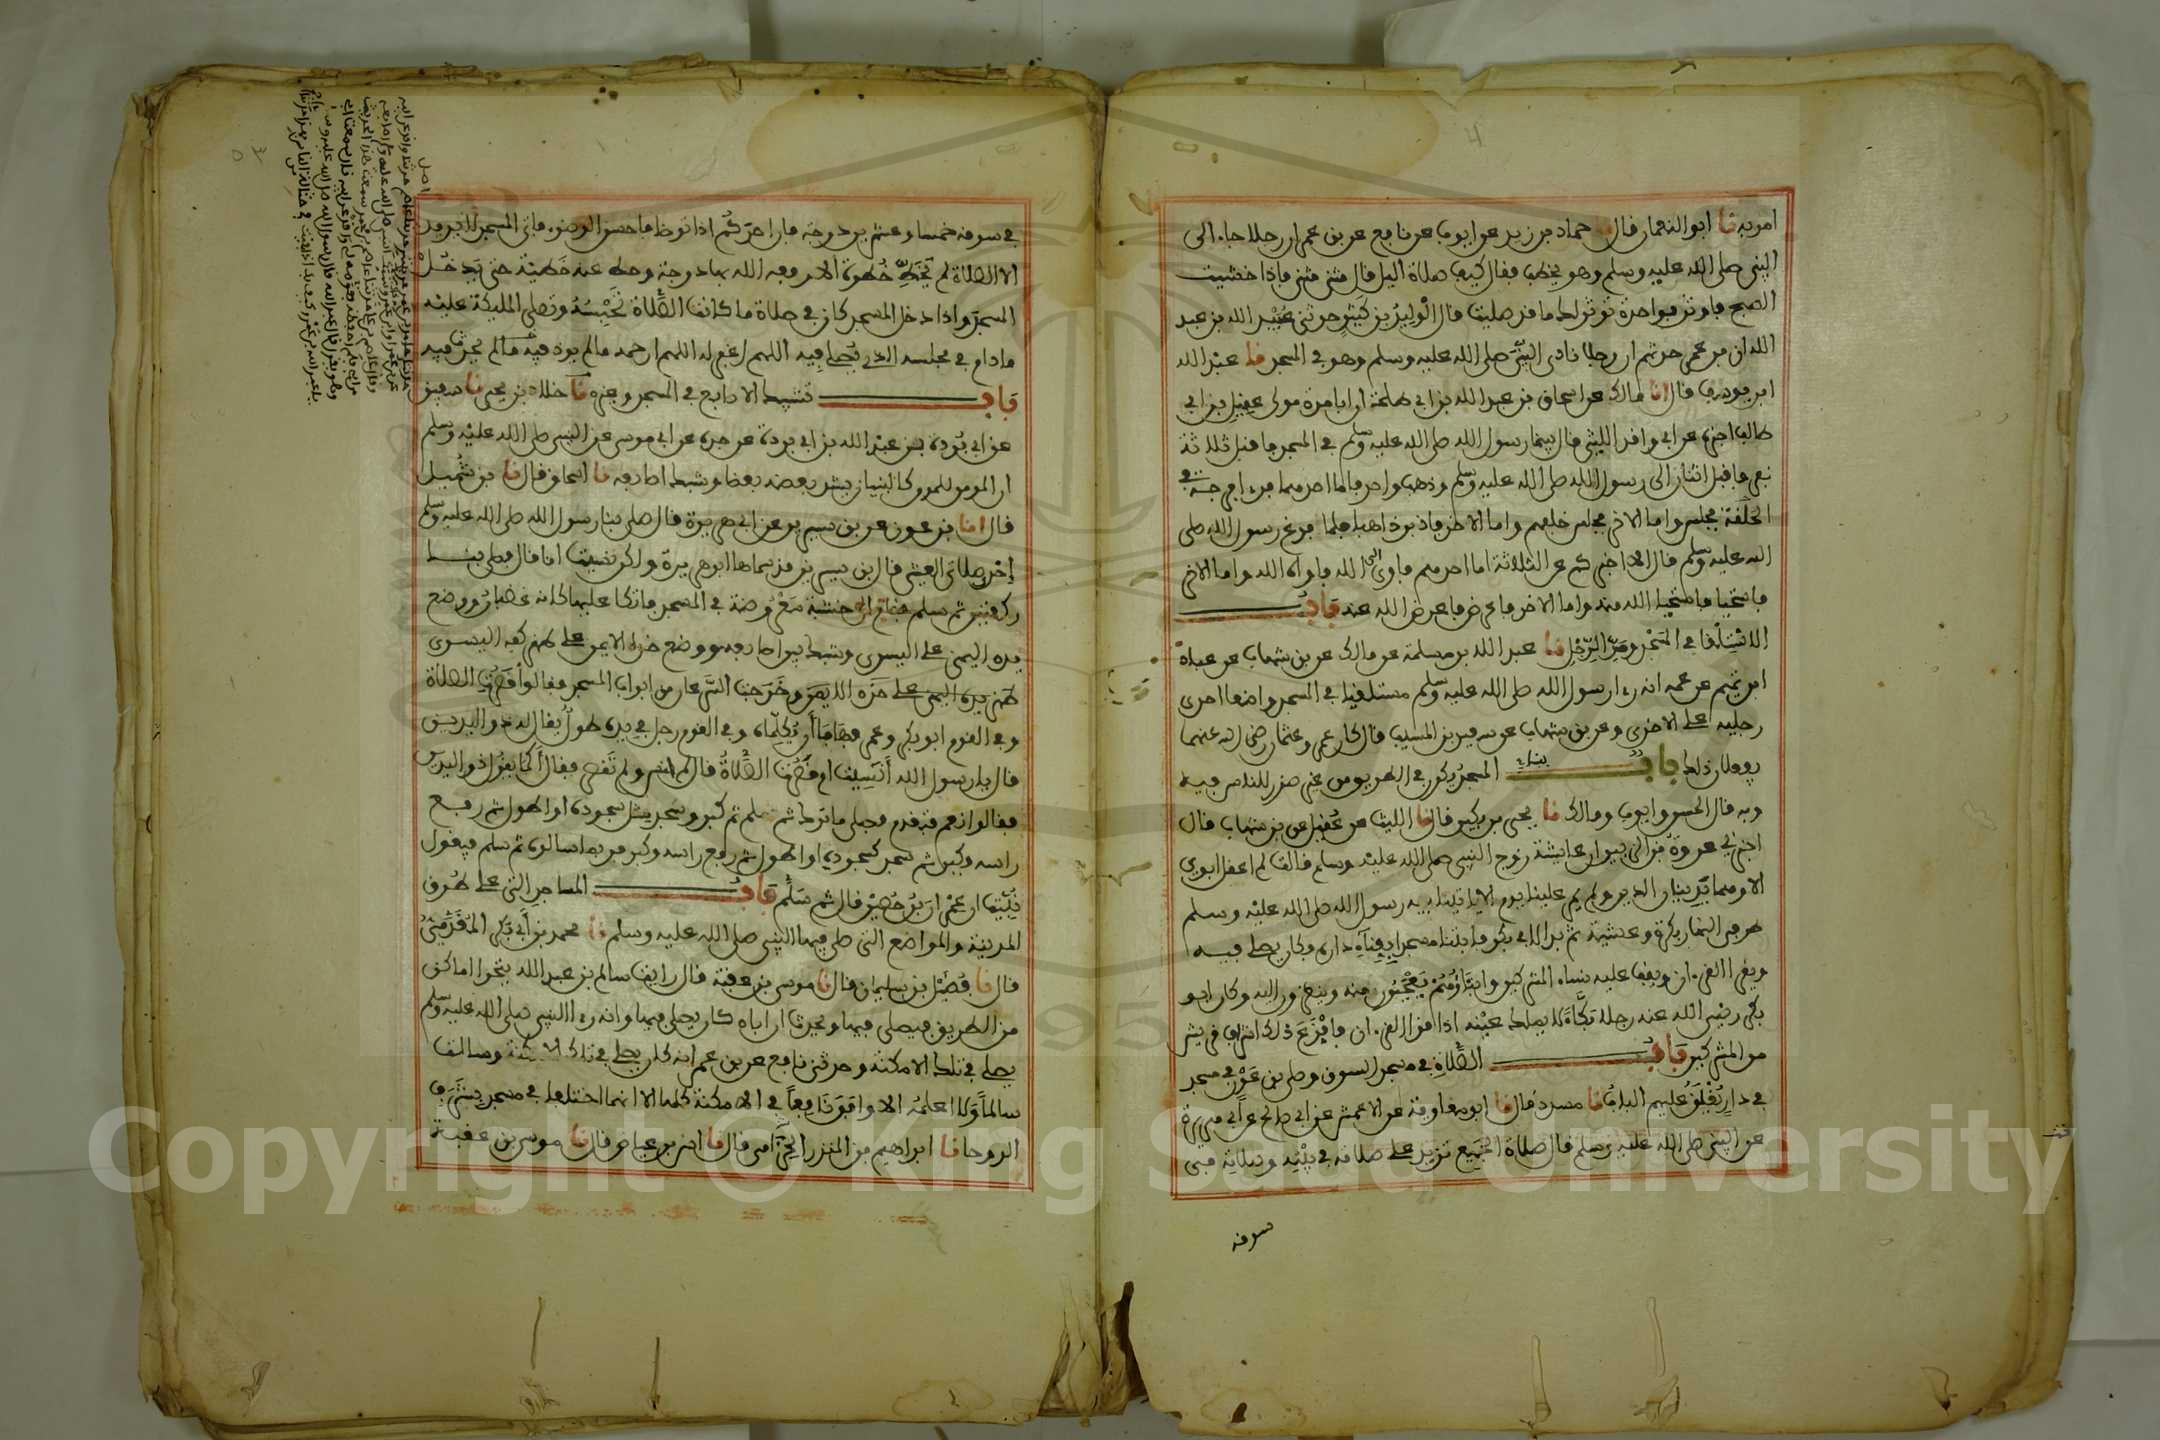 امر به نا ابو النعمان قال نا حماد بن زيد عن ايوب عن نافع عن بن عمر ان رجلا جاء الى
النبي صلى الله عليه وسلم وهو يخطب فقال كيف صلاة اليل قال مثنى مثنى فاذا خشيت
الصبح فاوتر بواحدة توتر لك ما قد صليت قال الوليد بن كثير حدثني عبيد الله بن عبد
الله ان بن عمر حدثهم ان رجلا نادى النبي صلى الله عليه وسلم وهو في المسجد نا عبد الله
ابن يوسف قال انا مالك عن اسحاق بن عبد الله بن ابي طلحة ان ابا مرة مولى عقيل بن ابي
طالب اخبره عن ابي واقد الليثي قال بينما رسول الله صلى الله عليه وسلم في المسجد فاقبل ثلاثة
نفر فاقبل اثنان الى رسول الله صلى الله عليه وسلم وذهب واحد فاما احدهما فرءا فرجة في
الحلقة فجلس واما الاخر فجلس خلفهم واما الاخر فادبر ذاهبا فلما فرغ رسول الله صلى
الله عليه وسلم قال الا اخبركم عن الثلاثة اما احدهم فاوى الى الله فاواه الله واما الاخر
فاستحيا فاستحيا الله منه واما الاخر فاعرض فاعرض الله عنه باب
الاستلقا في المسجد ومد الرجل نا عبد الله بن مسلمة عن مالك عن بن شهاب عن عباد
ابن تميم عن عمه انه رءا رسول الله صلى الله عليه وسلم مستلقيا في المسجد واضعا احدى
رجليه على الاخرى وعن بن شهاب عن سعيد بن المسيب قال كان عمر وعثمان رضي الله عنهما
يفعلان ذلك باب المسجد يكون في الطريق من غير ضرر للناس فيه
وبه قال الحسن وايوب ومالك نا يحيى بن بكير قال نا الليث عن عقيل عن بن شهاب قال
اخبرني عروة بن الزبير ان عايشة زوج النبي صلى الله عليه وسلم قالت لم اعقل ابوي
الا وهما يدينان الدين ولم يمر علينا يوم الا ياتينا فيه رسول الله صلى الله عليه وسلم
طرفي النهار بكرة وعشية ثم بدا لابي بكر فابتنا مسجدا بفناء داره فكان يصلي فيه
ويقرا القرءان فيقف عليه نساء المشركين وابناؤهم يعجبون منه وينظرون اليه وكان ابو
بكر رضي الله عنه رجلا بكاء لا يملك عينيه اذا قرا القرءان فافزع ذلك اشراف قريش
من المشركين باب الصلاة في مسجد السوق وصلى بن عون في مسجد
في دار يغلق عليهم الباب نا مسدد قال نا ابو معاوية عن الاعمش عن ابي صالح عن ابي هريرة
عن النبي صلى الله عليه وسلم قال صلاة الجميع تزيد على صلاته في بيته وصلاته في
سوقه
في سوقه خمسا وعشرين درجة فان احدكم اذا توضا فاحسن الوضوء واتى المسجد لا يريد
الا الصلاة لم يخط خطوة الا رفعه الله بها درجة وحط عنه خطيئة حتى يدخل
المسجد واذا دخل المسجد كان في صلاة ما كانت الصلاة تحبسه وتصلي المليكة عليه
ما دام في مجلسه الذي يصلي فيه اللهم اغفر له اللهم ارحمه ما لم يوذ فيه ما لم يحدث فيه
باب تشبيك الاصابع في المسجد وغيره نا خلاد بن يحيى نا سفين
عن ابي بردة بن عبد الله بن ابي بردة عن جده عن ابي موسى عن النبي صلى الله عليه وسلم
ان المومن للمومن كالبنيان يشد بعضه بعضا وشبك اصابعه نا اسحاق قال نا بن شميل
قال انا بن عون عن بن سيرين عن ابي هريرة قال صلى بنا رسول الله صلى الله عليه وسلم
احدى صلاتي العشي قال بن سيرين قد سماها ابو هريرة ولكن نسيت انا قال فصلى بنا
ركعتين ثم سلم فقام الى خشبة معروضة في المسجد فاتكا عليها كانه غضبان ووضع
يده اليمنى على اليسرى وشبك بين اصابعه ووضع خده الايمن على ظهر كفه اليسرى
وخرجت السرعان من ابواب المسجد فقالوا قصرت الصلاة
وفي القوم ابو بكر وعمر فهابا ان يكلماه وفي القوم رجل في يده طول يقال له ذو اليدين
قال يا رسول الله انسيت ام قصرت الصلاة قال لم انس ولم تقصر فقال اكما يقول ذو اليدين
فقالوا نعم فتقدم فصلى ما ترك ثم سلم ثم كبر وسجد مثل سجوده او اطول ثم رفع
راسه وكبر ثم سجد كسجوده او اطول ثم رفع راسه وكبر فربما سالوه ثم سلم فيقول
نبئت ان عمران بن حصين قال ثم سلم باب المساجد التي على طرق
المدينة والمواضع التي صلى فيها النبي صلى الله عليه وسلم نا محمد بن ابي بكر المقدمي
قال نا فضيل بن سليمان قال نا موسى بن عقبة قال رايت سالم بن عبد الله يتحرا اماكن
من الطريق فيصلي فيها ويحدث ان اباه كان يصلي فيها وانه رءا النبي صلى الله عليه وسلم
يصلي في تلك الامكنة وحدثني نافع عن بن عمر انه كان يصلي في تلك الامكنة وسالت
سالما ولا اعلمه الا وافق نافعا في الامكنة كلها الا انهما اختلفا في مسجد بشرف
الروحا نا ابراهيم بن المنذر الحزامي قال نا انس بن عياض قال نا موسى بن عقبة
Copyright © King Saud University